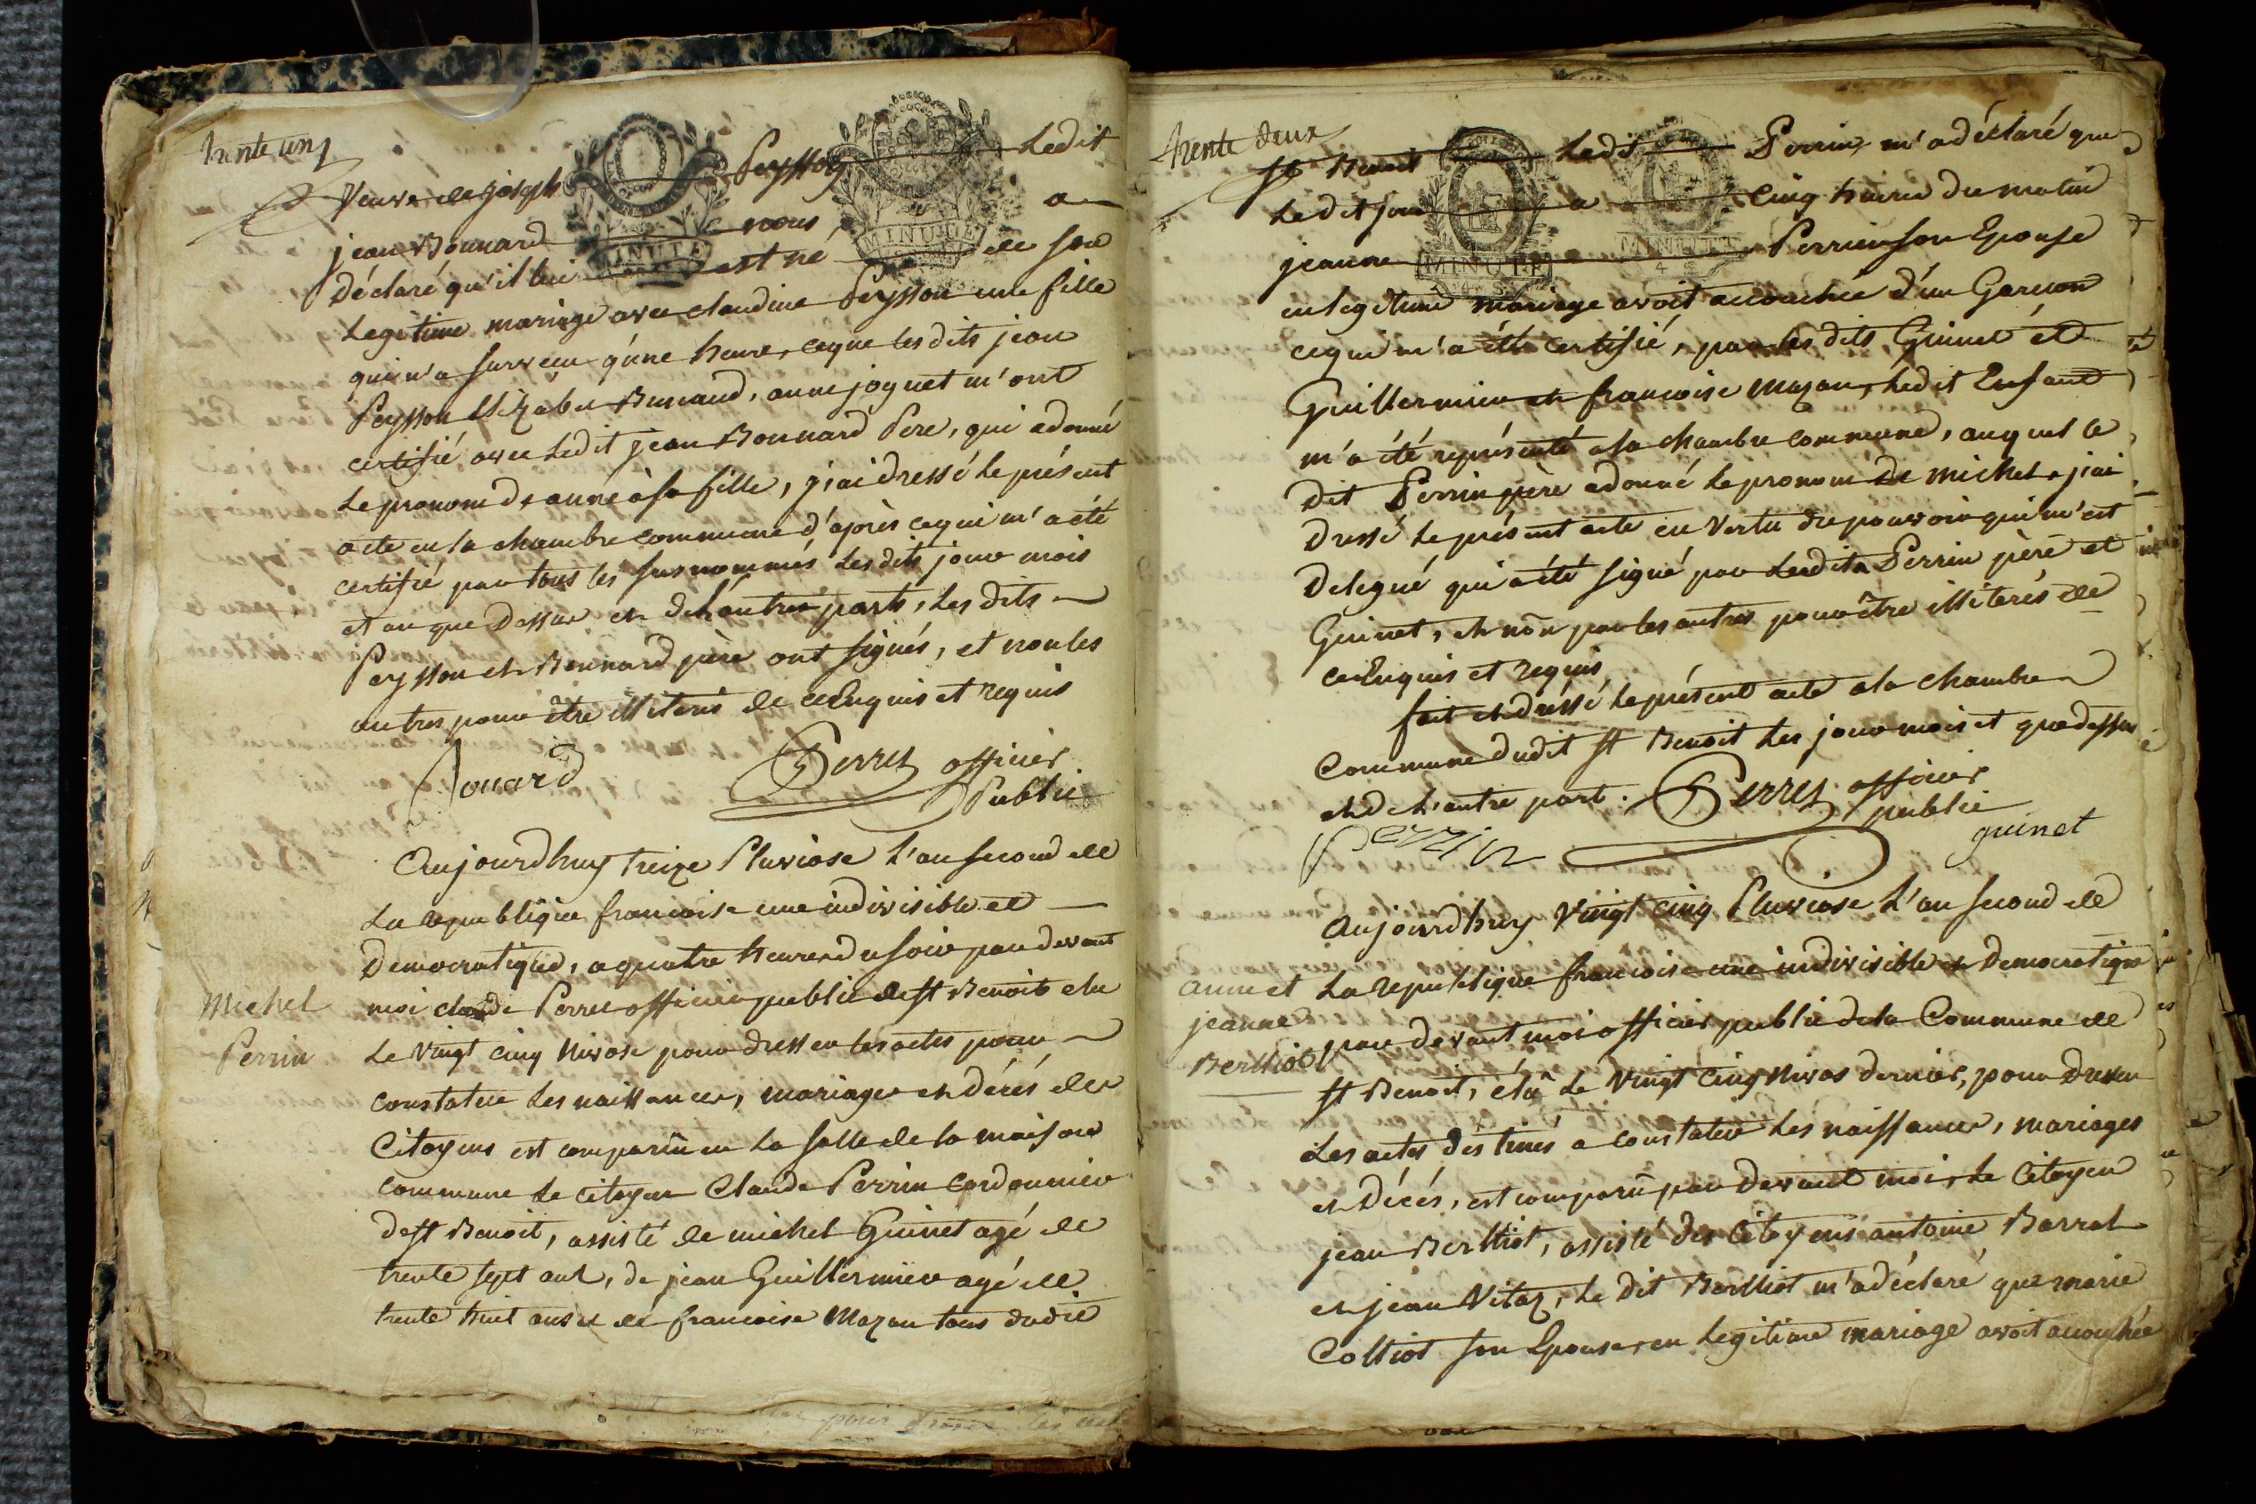 trente un
veuve de joseph Peysson Ledit
jean Bonnard nous a
Déclaré qu'il lui est né de son
Legitime mariage avec claudine Peysson une fille
qui n'a survécu q'une heure, ce que les dits jean
Peysson Elizabet Burtaud, anne joguet m'ont
certifié avec Ledit jean Bonnard Pere, qui a donné
Le pronom de anne à sa fille, j'ai dressé le présent
acte en la chambre commune d'après ce qui m'a été
certifié par tous les susnommés Lesdits jour mois
et an que Dessus et de L'autre part, Les dits
Peysson et Bonnard père ont signés, et non les
autres pour être illiterés de ce Enquis et requis
Perret officier
Public
Aujourdhuy treize Pluviose L'an second de
La republique francoise une indivisible et
Democratique, a quatre heures du soir par devant
Michel
moi claude Perret officier public de st Benoit elu
Perrin
Le vingt cinq Nivose pour dresser les actes pour
constater Les naissances, mariages et décés des
Citoyens est comparû en La salle de la maison
commune Le citoyen Claude Perrin cordonnier
de st Benoit, assisté de michel Guinet agé de
trente sept ans, de jean Guillermier agé de
trente huit ans et de francoise Mazan tous dudit
trente deux
st Benoit Ledit Perrin m'a déclaré que
Ledit jour a cinq heures du matin
jeanne Perrier son Epouse
en legitime mariage avoit accouchée d'un Garcon
ce qui m'a été certifié, par les dits Guinet et
Guillermier et francoise Mazan, Ledit Enfant
m'a été représenté a la chambre commune, auquel le
dit Perrin père a donné le pronom de michel, j'ai
dressé le présent acte en vertu du pouvoir qui m'est
Delegué qui a été signé par Lesdits Perrin père et
Guinet, et non par les autres pour être illiterés de
ce Enquis et requis
fait et dréssé le présent acte a la chambre
Commune dudit st Benoit Les jour mois et que dessus
et de L'autre part. Perret officier
public
Perrin
guinet
Aujourdhuy Vingt cinq Pluviose L'an second de
anne et
La republique francoise une indivisible et Democratique
jeanne
par devant moi officier public de la Commune de
Berlliot
st Benoit, élû Le Vingt cinq Nivos dernier, pour Dresser
Les actes déstinés a constater Les naissances, mariages
et Décés, est comparû par Devant moi, Le Citoyen
jean Berlliot, assisté des Citoyens antoine Barral
et jean Vitaz, Le Dit Berlliot m'a déclaré que marie
Colliot son Epouse, en Legitime mariage avoit accouchée